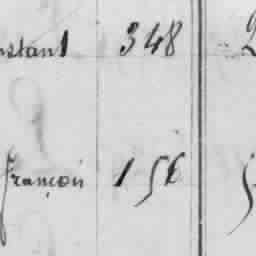 nstant 348
François 156